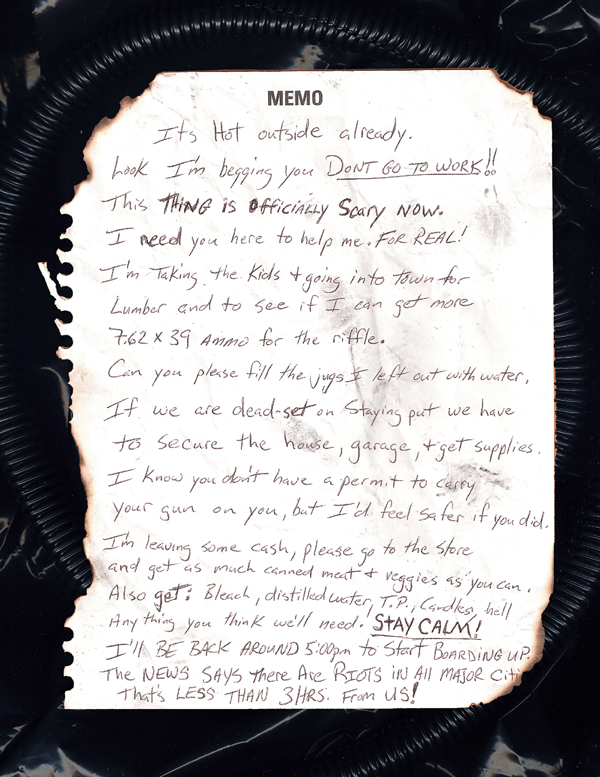 MEMO
Its Hot outside already.
Look I'm begging you DONT GO TO WORK!!
This THING is OfficiALLY Scary NOW.
I need you here to help me. FOR REAL!
I'm Taking the Kids + going into town for
Lumber and to see if I can get more
7.62 x 39 AMMO for the riffle.
Can you please fill the jugs I left out with water.
If we are dead-set on Staying put we have
to secure the house, garage, + get supplies.
I Know you don't have a permit to carry
your gun on you, but I'd feel safer if you did.
I'm leaving some cash, please go to the store
and get as much canned meat + veggies as you can.
Also get: Bleach, distilled water, T.P., Candles, hell
Any thing you think we'll need. STAY CALM!
I'll BE BACK AROUND 5:00pm to Start BOARDING UP.
The NEWS SAYS there Are RIOTS in All MAJOR Citi
That's LESS THAN 3 HRS. From US!